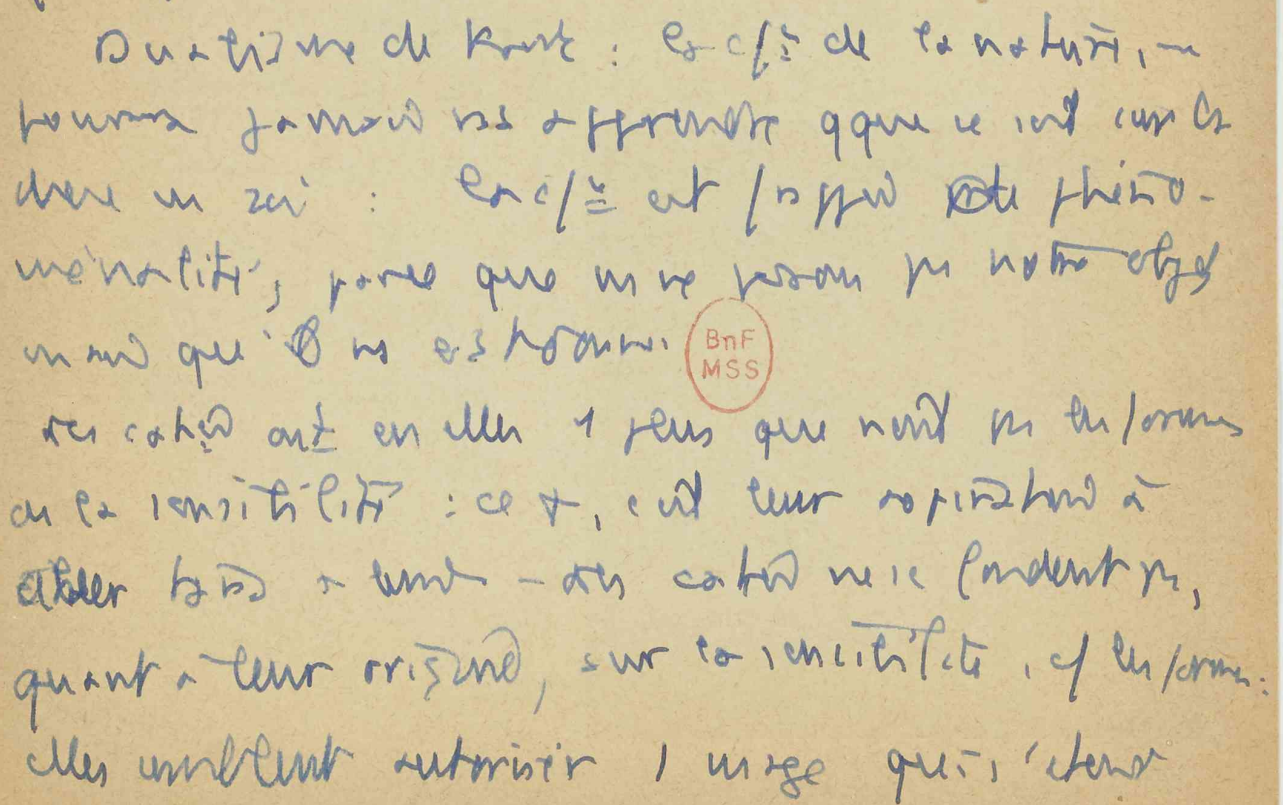 Dualisme de Kant : la c/ce de la nature, ne
pourra jamais ns apprendre qque ce soit sur la
chose en soi :
ménalité, parce que ns ne posons pas notre objet
mais qu'il ns est donné.
BnF
MSS
Les ont en elles 1 plus que n'ont pas les formes
de la sensibilité : ce +, c'est leur aspiration à
aller - Les ne se fondent pas,
quant à leur origine, sur la sensibilité, c/ les formes :
elles semblent autoriser 1 usage qui s'étend